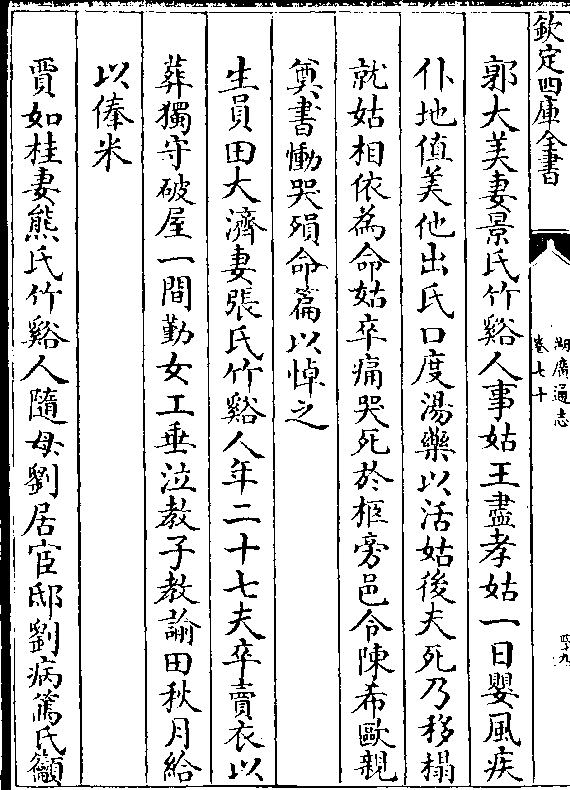 欽定四庫全書
湖廣通志
卷七十
四十九
郭大美妻景氏竹谿人事姑王盡孝姑一日嬰風疾
仆地值美他出氏口度湯藥以活姑後夫死乃移榻
就姑相依為命姑卒痛哭死於柩旁邑令陳希歐親
奠書慟哭殞命篇以悼之
生員田大濟妻張氏竹谿人年二十七夫卒賣衣以
葬獨守破屋一間勤女工垂泣教子教諭田秋月給
以俸米
賈如桂妻熊氏竹谿人隨母劉居宦邸劉病篤氏籲